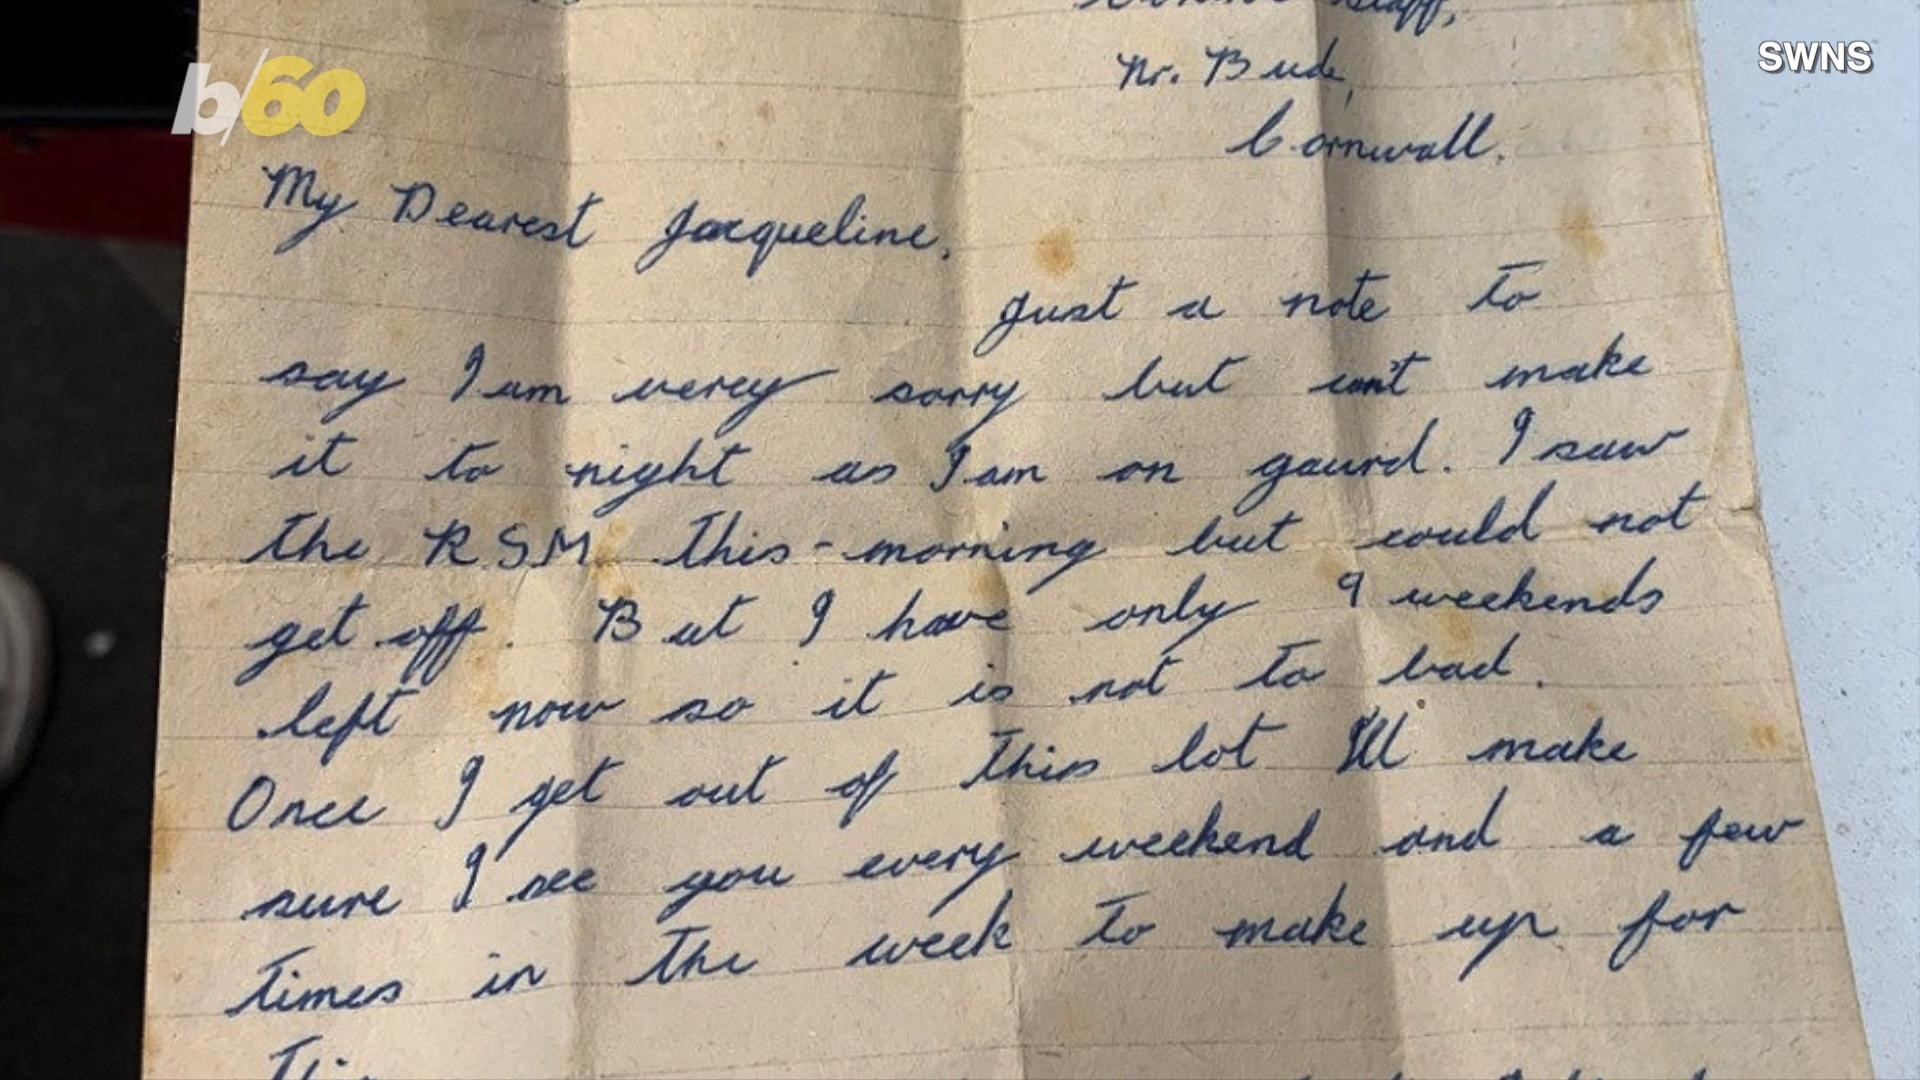 SWNS
b/60
Nr. Bude,
Cornwall.
My Dearest Jacqueline,
Just a note to
say I am verey sorry but can't make
it to night as I am on gaurd. I saw
the RSM this-morning but could not
get off. But I have only 9 weekends
left now so it is not to bad.
Once I get out of this lot I'll make
sure I see you every weekend and a few
times in the week to make up for